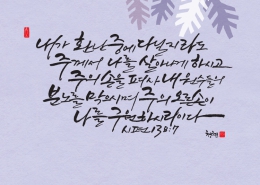 내가 환난 중에 다닐지라도
주께서 나를 살아나게 하시고
주의 손을 펴사 내 원수들의
분노를 막으시며 주의 오른손이
나를 구원하시리이다
시편 138:7